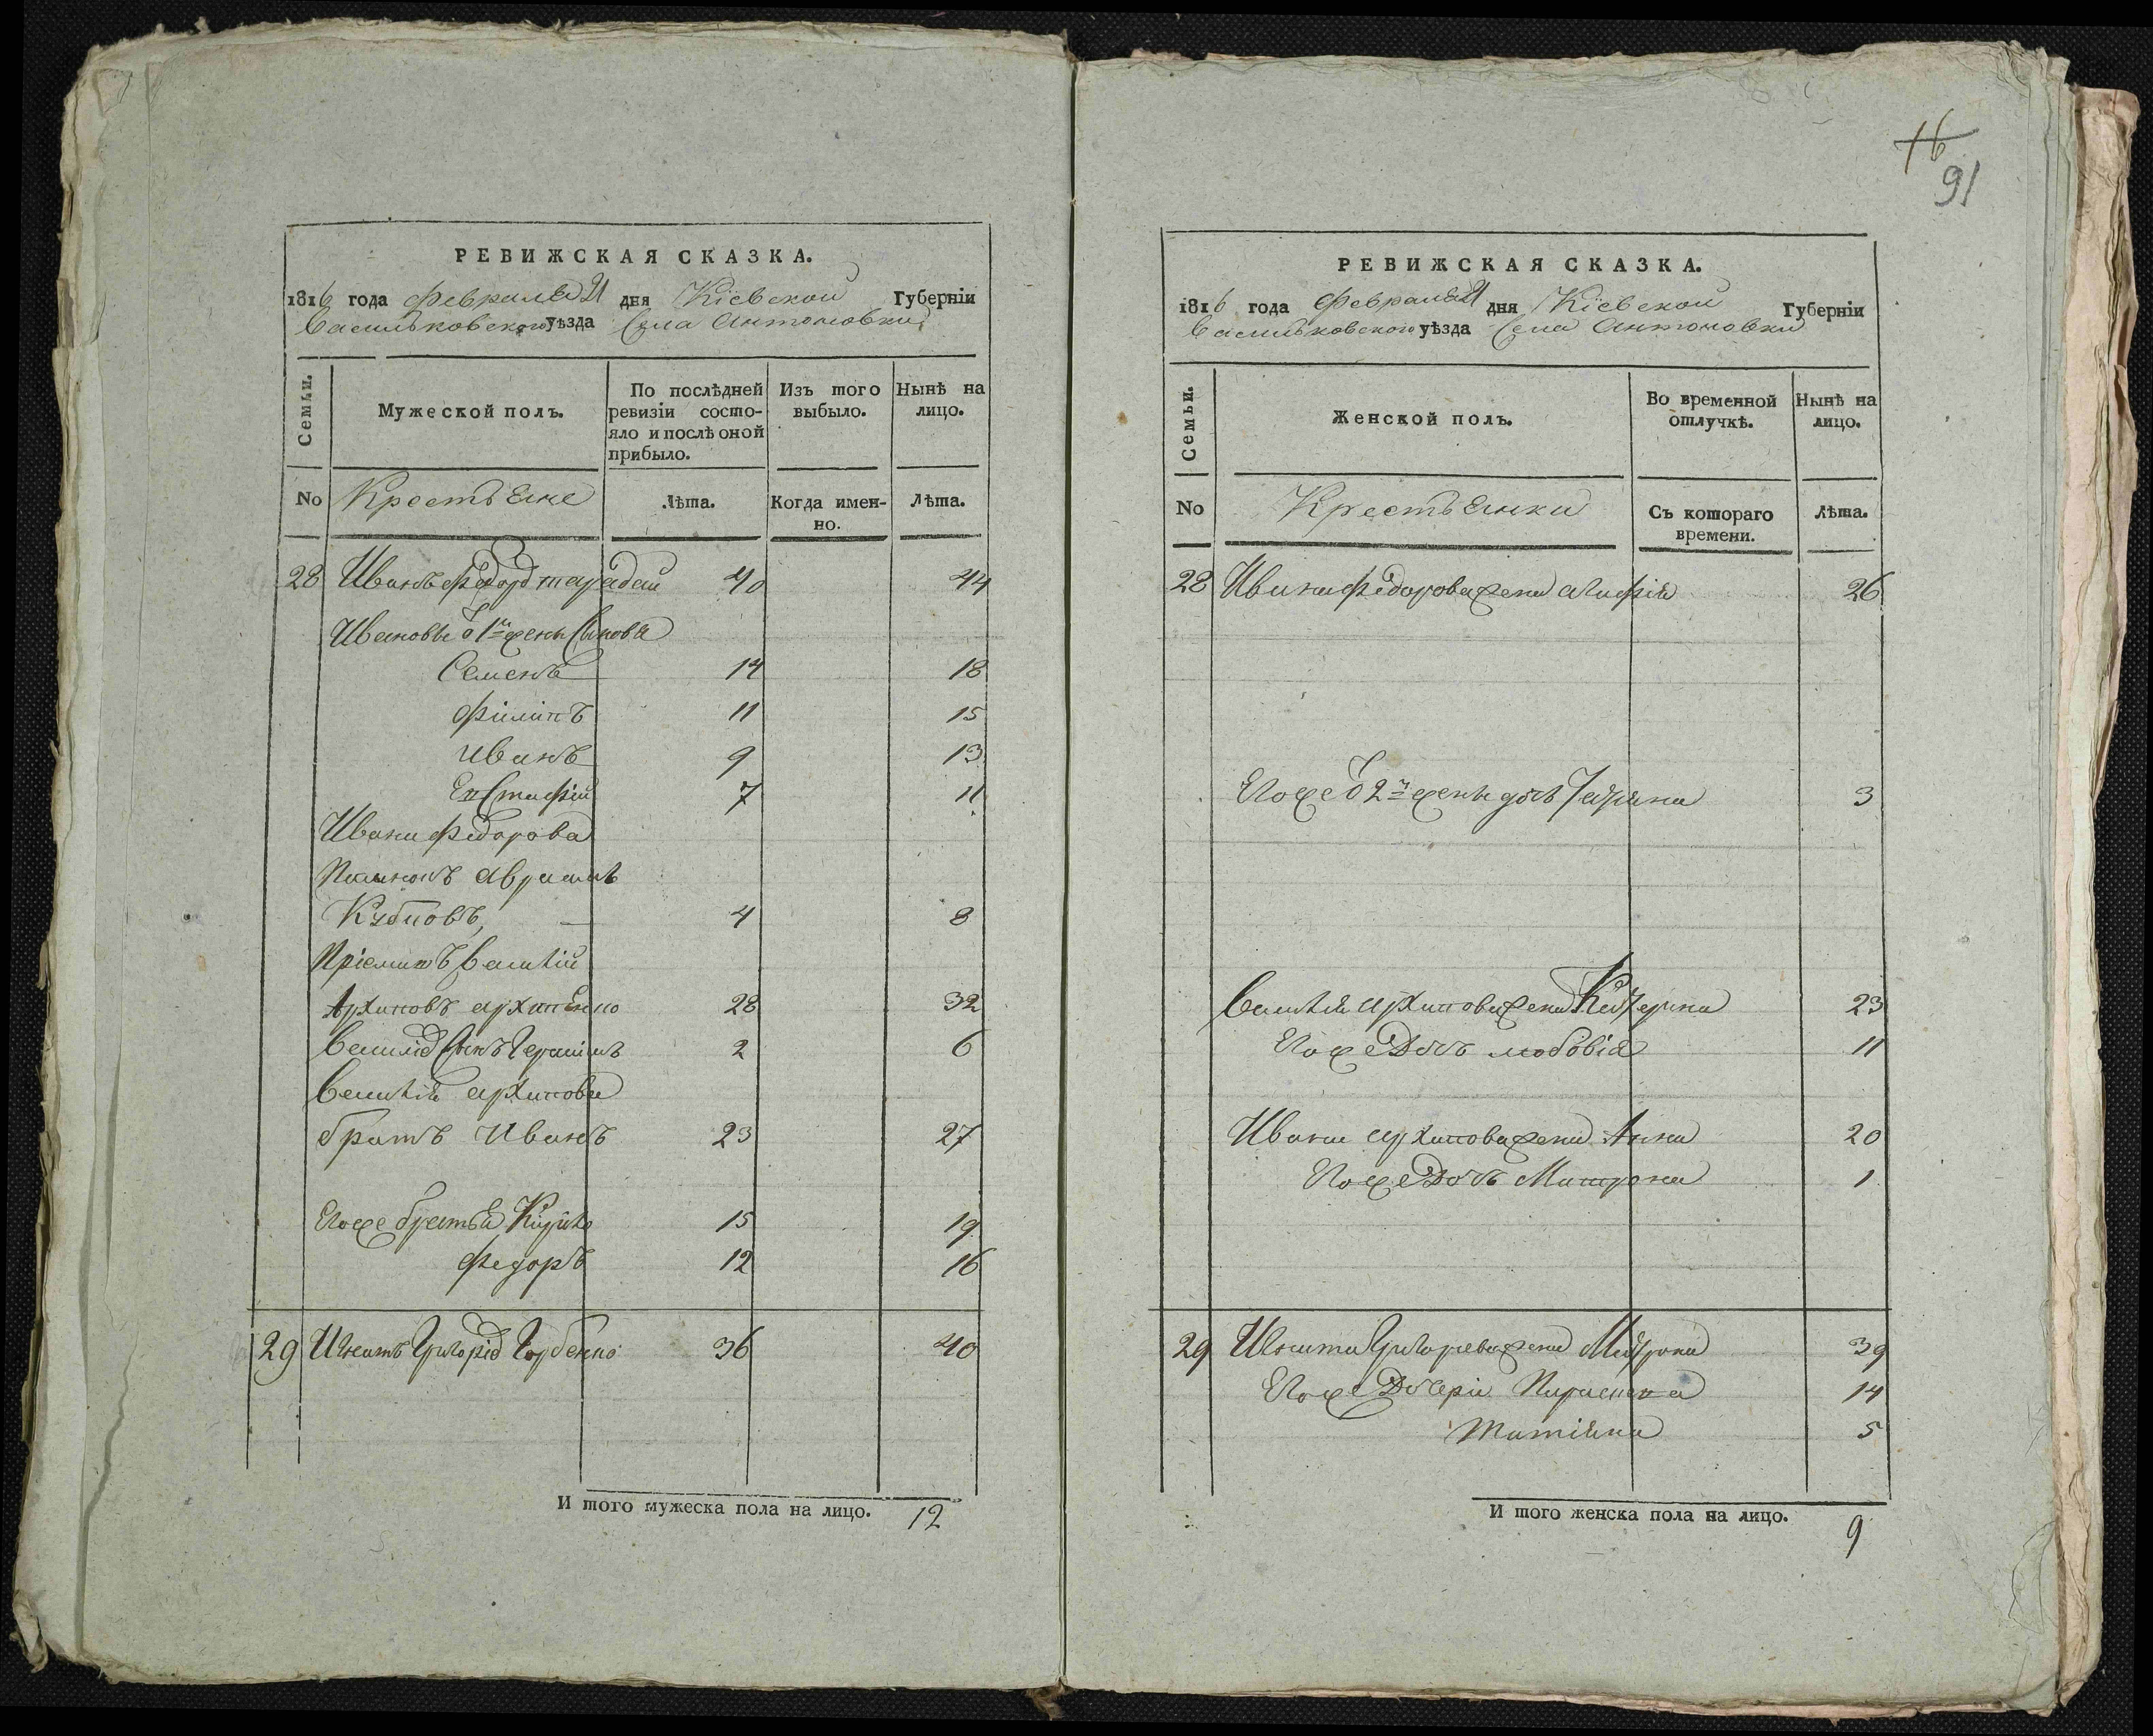 РЕВИЖСКАЯ СКАЗКА.
1816 года февраля 21 дня Кіевской Губерніи
Васильковского уѣзда Села Антоновки
Семьи.
Мужеской полъ.
По послѣдней ревизіи состо-
яло и послѣ оной прибыло.
Изъ того выбыло.
Нынѣ на лицо.
No Крестьяне
Лѣта.
Когда имен-
но.
Лѣта.
28 Иванъ федоровъ 40 44
Ивановы 1й жены Сынова
Семенъ 14 18
Филипъ 11 15
Иванъ 9 13
Евстафій 7 11
Ивана федорова
Аврамъ
4 8
Пріемышъ Василій
Архиповъ архипенко 28 32
Сынъ 2 6
Василія архипова
братъ Иванъ 23 27
Егоже братья Кирило 15 19
федоръ 12 16
29 Игнатъ Григоріев Горбенко 36 40
И того мужеска пола на лицо. 12
16
91
РЕВИЖСКАЯ СКАЗКА.
1816 года февраля 21 дня Кіевской Губерніи
Васильковского уѣзда Села Антоновки
Семьи.
Женской полъ.
Во временной отлучкѣ.
Нынѣ на лицо.
No Крестьянки
Съ котораго времени.
Лѣта.
28 Ивана федорова жена 26
Егоже 2й жены дочь 3
Василія архипова жена Катерина 23
Егоже Дочь 11
Ивана архипова жена Анна 20
Егоже Дочь Матрона 1
29 Игната Григорева жена Матрона 39
Егоже Дочери 14
Татіяна 5
И того женска пола на лицо. 9